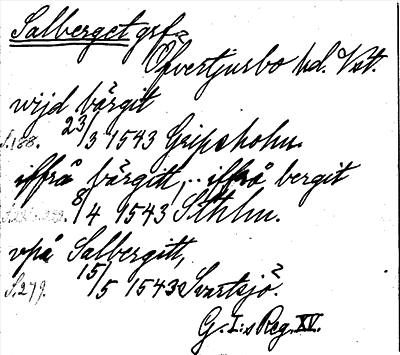 Salberget grf.
Öfvertjurbo hd. Vst.
wijd bärgit
S.188. 23/3 1543 Gripsholm.
iffrå bärgitt, .. iffrå bergit
8/4 1543 Sthlm.
vpå Salbergitt,
S.279. 15/5 1543 Svartsjö.
G. I:s Reg. XV.